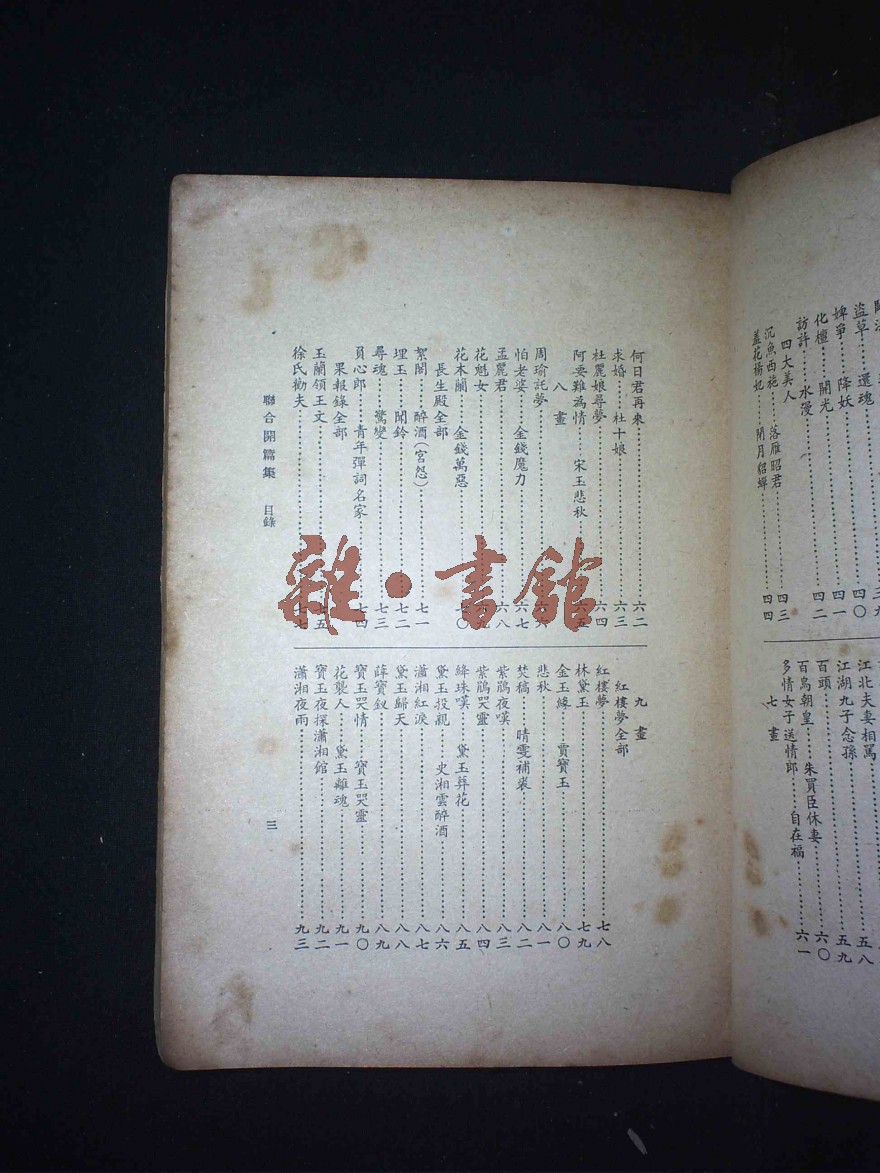 盜草　還魂……三九
婢爭　降妖……四〇
化檀　開光……四一
訪許　水漫……四二
四大美人
沉魚西施……落雁昭君……四三
羞花楊妃……閉月貂蟬……四四
江北夫妻相罵
江湖九子念孫……五八
百頭……五九
百鳥朝皇……朱買臣休妻……六〇
多情女子送情郎……自在福……六一
七畫
何日君再來……六二
求婚……杜十娘……六三
杜麗娘尋夢……六四
阿要難為情……宋玉悲秋……六五
八畫
周瑜託夢……六六
怕老婆……金錢魔力……六七
孟麗君……六八
花魁女……六九
花木蘭……金錢萬惡……七〇
長生殿全部
絮閣……醉酒(宮怨)……七一
埋玉……聞鈴……七二
尋魂……驚變……七三
員心郎……青年彈詞名家……七四
果報錄全部
玉蘭領王文……七五
徐氏勸夫……七七
九畫
紅樓夢全部
紅樓夢……七八
林黛玉……七九
金玉緣……賈寶玉……八〇
悲秋……八一
焚稿……晴雯補裘……八二
紫鵑夜嘆……八三
紫鵑哭靈……八四
絳珠嘆……黛玉葬花……八五
黛玉投親……史湘雲醉酒……八六
瀟湘紅淚……八七
黛玉歸天……八八
薛寶釵……八九
寶玉哭情……寶玉哭靈……九〇
花襲人……黛玉離魂……九一
寶玉夜探瀟湘館……九二
瀟湘夜雨……九三
聯合開篇集　目錄
三
雜·書館